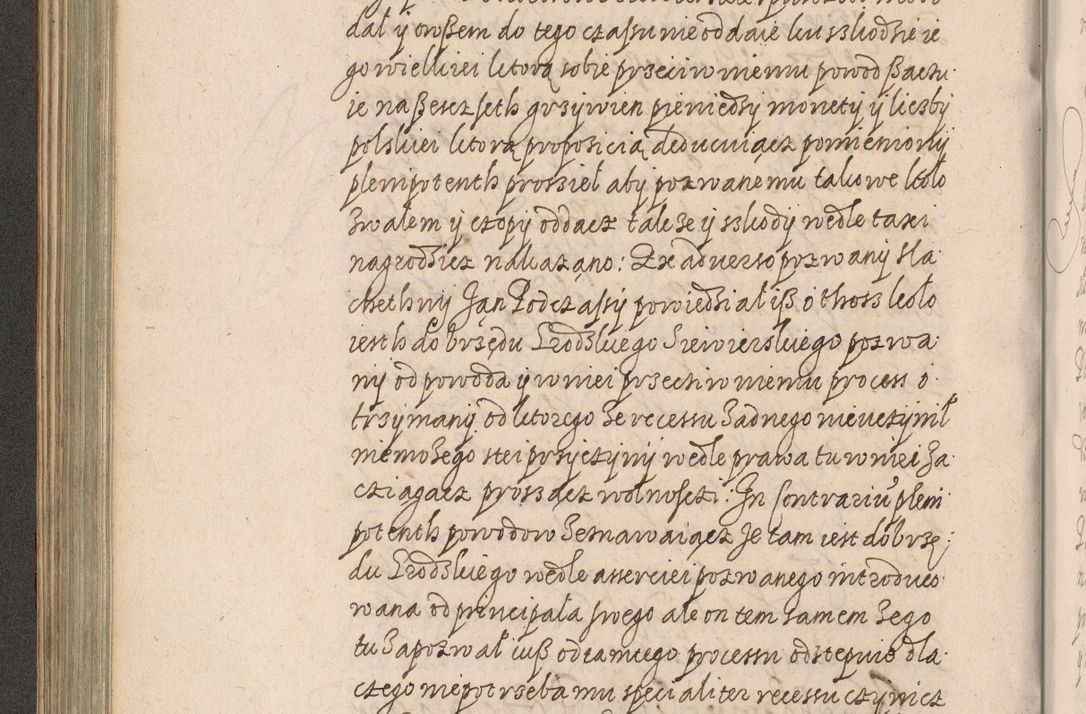 dał ÿ owßem do tego czassu nie oddaie ku sskodzie ie
go wielkiei ktorą sobie przeciw niemu powod ßaczu
ie na ßescz seth grzywien pieniedzÿ monetÿ ÿ liczbÿ
polskiei ktorą proposicią deducuiącz pomienionÿ
plenipotenth prossieł abÿ pozwanemu takowe koło
z wałem ÿ czopÿ oddacz takze ÿ sskodÿ wedle taxi
nagrodzicz nakazano: Ex aduerso pozwanÿ sla
chethnÿ Jan Podczassÿ powiedział iß o thoss koło
iesth do vrzędu Grodskiego Siewierskiego pozwa
nÿ od powoda ÿ w niei przeciw niemu process o
trzÿmanÿ od ktorego ze recessu zadnego nie vczÿnił
nie moze go stei przÿczÿnÿ wedle prawa tu w niei za
cziagacz prosząc wolnosczi: In Contrariu pleni
potenth powodow zeznawaiącz ze tam iest do vrzę
du Grodskiego wedle asserciei pozwanego introduco
wana od principała swego ale on tem samem ze go
tu zapozwał iuß od tamtego processu odstepuie dla
czego nie potrzeba mu specialiter recessu czÿnicz